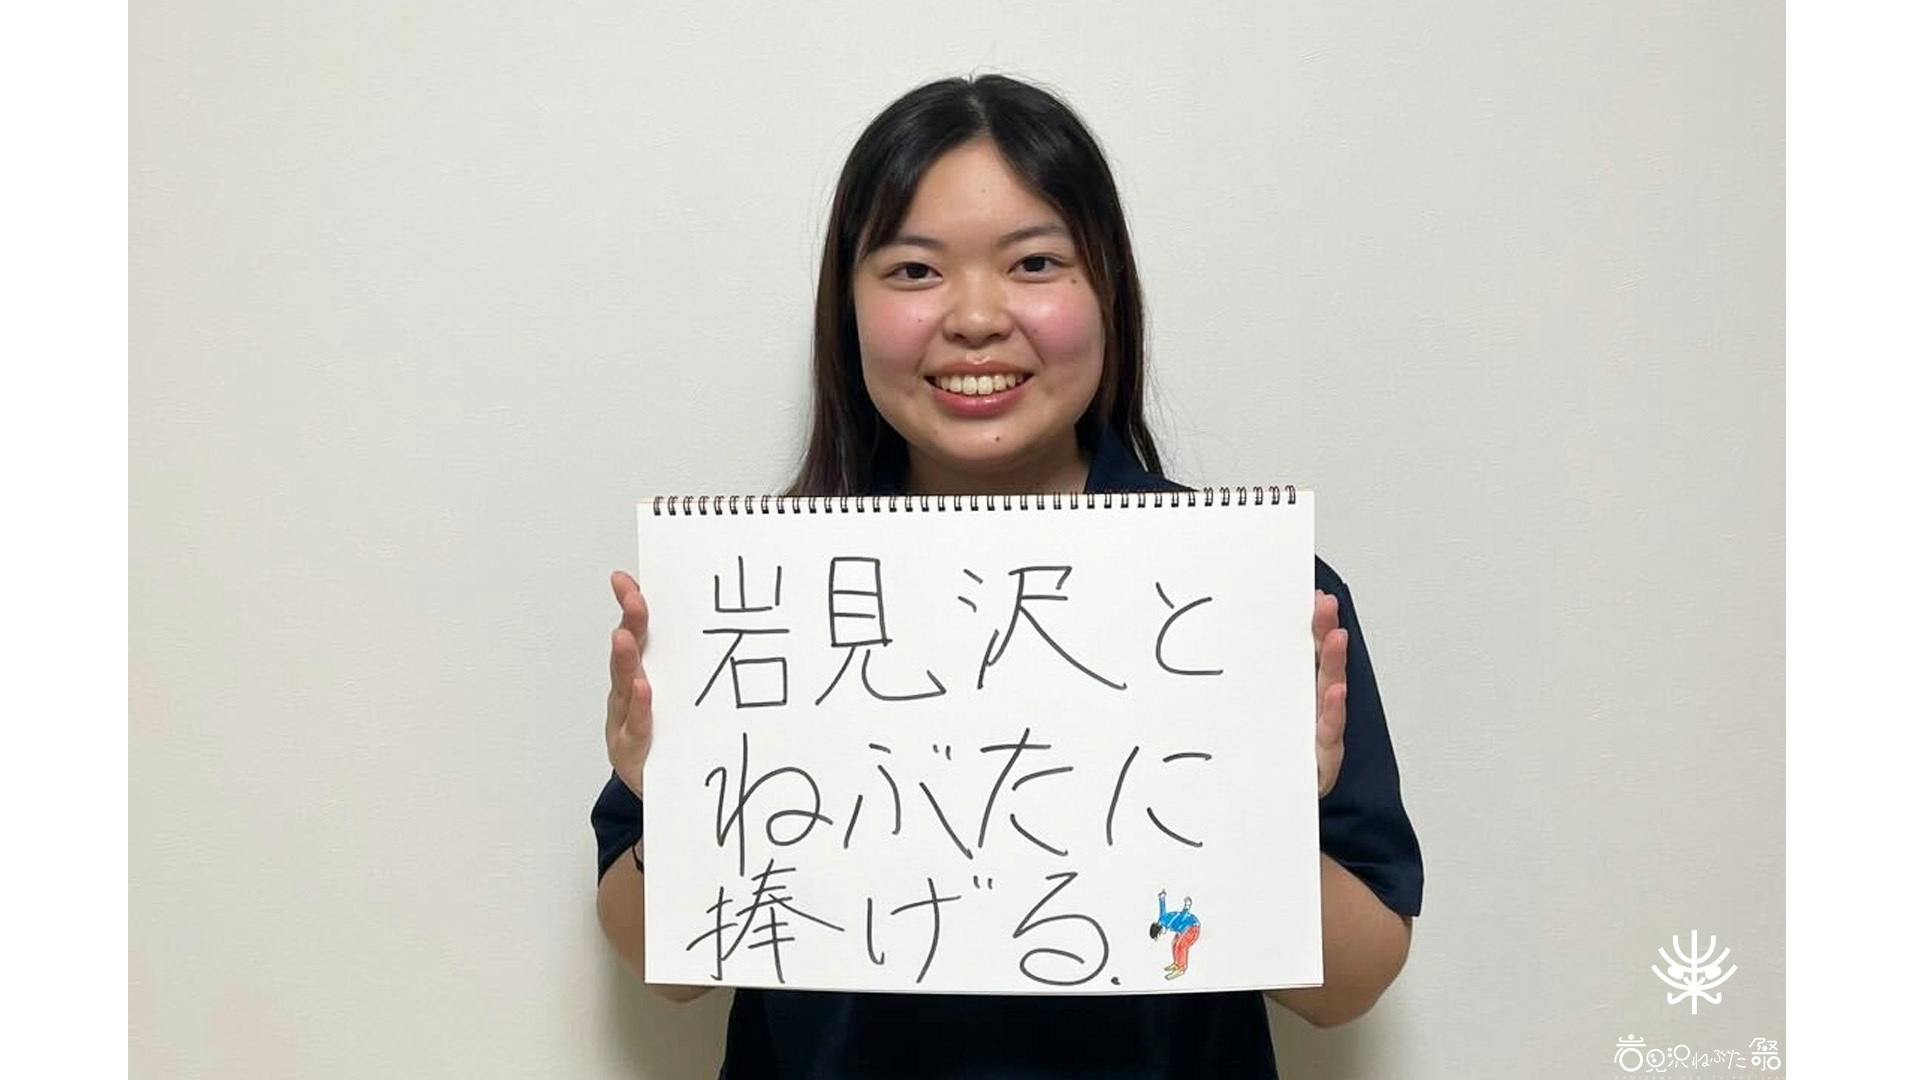 岩見沢と
ねぶたに
捧げる.
岩見沢ねぶた祭